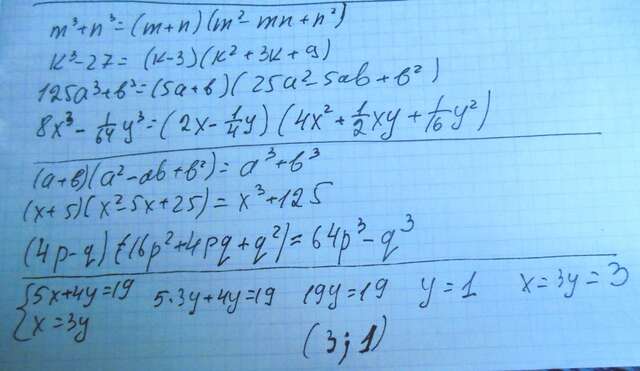 m³+n³=(m+n)(m²-mn+n²)
k³-27=(k-3)(k²+3k+9)
125a³+b³=(5a+b)(25a²-5ab+b²)
8x³-1/64y³=(2x-1/4y)(4x²+1/2xy+1/16y²)
(a+b)(a²-ab+b²)=a³+b³
(x+5)(x²-5x+25)=x³+125
(4p-q)(16p²+4pq+q²)=64p³-q³
{5x+4y=19 5·3y+4y=19 19y=19 y=1 x=3y=3
x=3y (3;1)